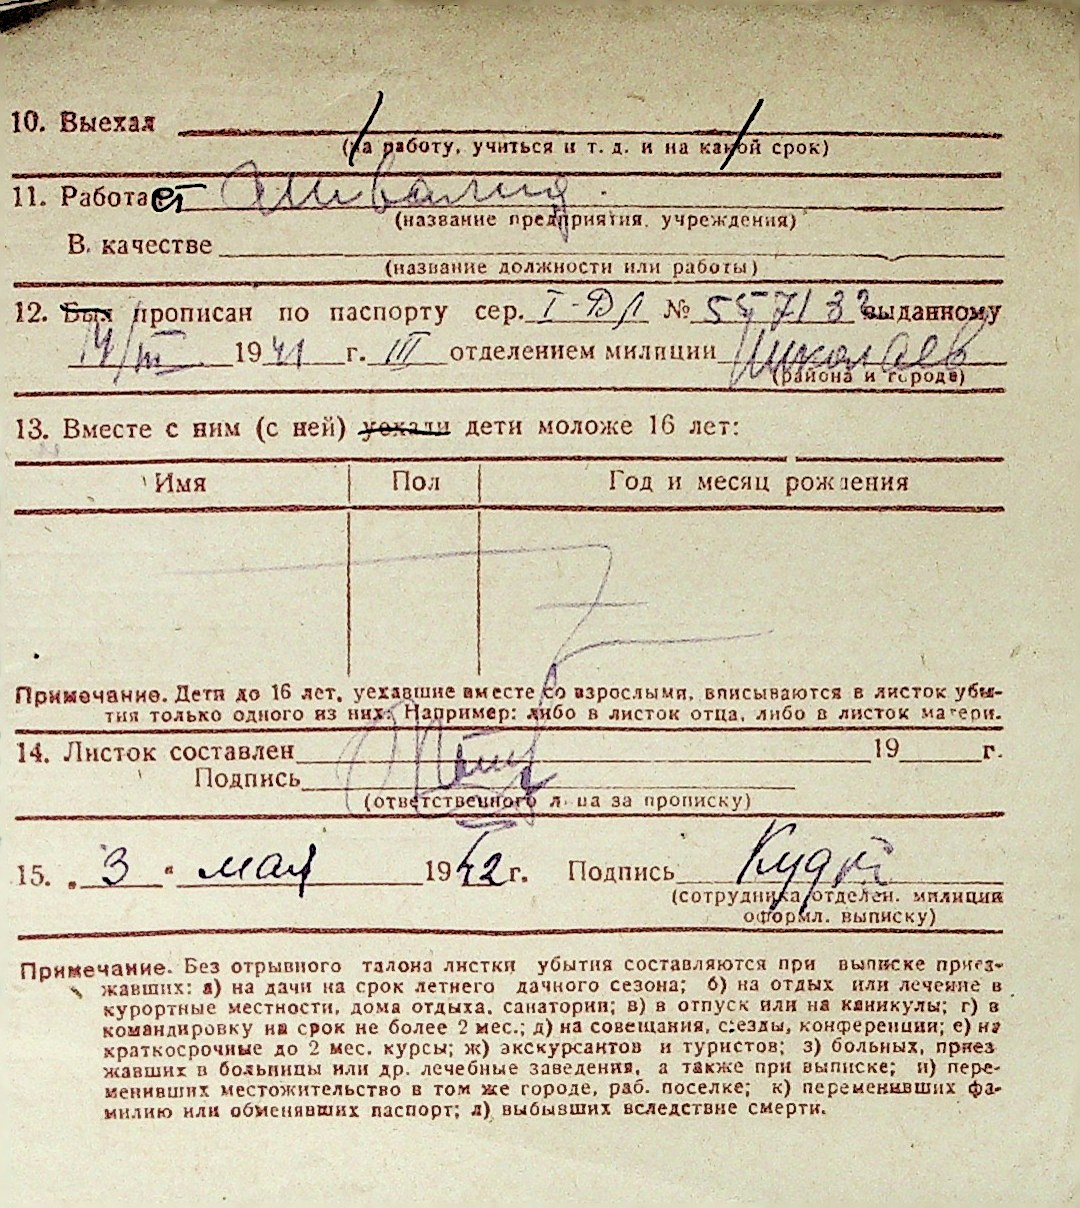 10. Выехал
(на работу, учиться и т. д. и на какой срок)
11. Работает инвалид.
(название предприятия, учреждения)
В качестве
(название должности или работы)
12. Был прописан по паспорту сер. I-ДЛ № 557132 выданному
14/III 1941 г. III отделением милиции Николаев
(района и города)
13. Вместе с ним (с ней) уехали дети моложе 16 лет:
Имя Пол Год и месяц рождения
Примечание. Дети до 16 лет, уехавшие вместе со взрослыми, вписываются в листок убы-
тия только одного из них: Например: либо в листок отца, либо в листок матери.
14. Листок составлен 19 г.
Подпись
(ответственного лица за прописку)
15. „3" мая 1942 г. Подпись
(сотрудника отделен. милиции
оформл. выписку)
Примечание. Без отрывного талона листки убытия составляются при выписке приез-
жавших: а) на дачи на срок летнего дачного сезона; б) на отдых или лечение в
курортные местности, дома отдыха, санатории; в) в отпуск или на каникулы; г) в
командировку на срок не более 2 мес.; д) на совещания, съезды, конференции; е) на
краткосрочные до 2 мес. курсы; ж) экскурсантов и туристов; з) больных, приез
жавших в больницы или др. лечебные заведения, а также при выписке; и) пере-
менивших местожительство в том же городе, раб. поселке; к) переменивших фа-
милию или обменявших паспорт; л) выбывших вследствие смерти.